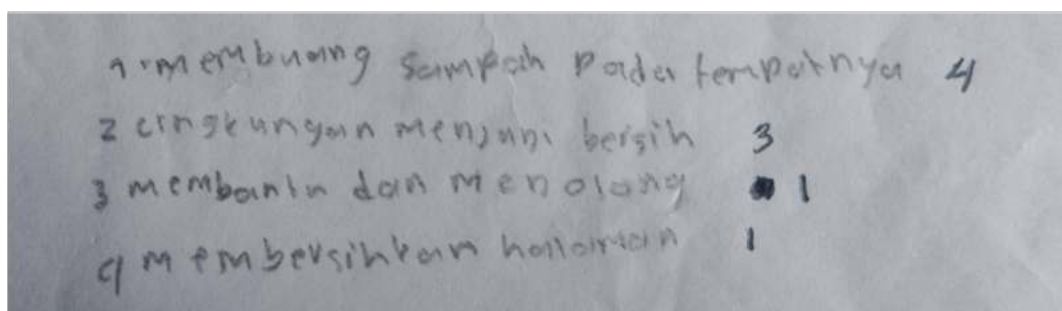 1. membuang sampah pada tempatnya 4
2 cingkungan menjadi bersih 3
3 membantu dan menolong 1
4 membersihkan halaman 1